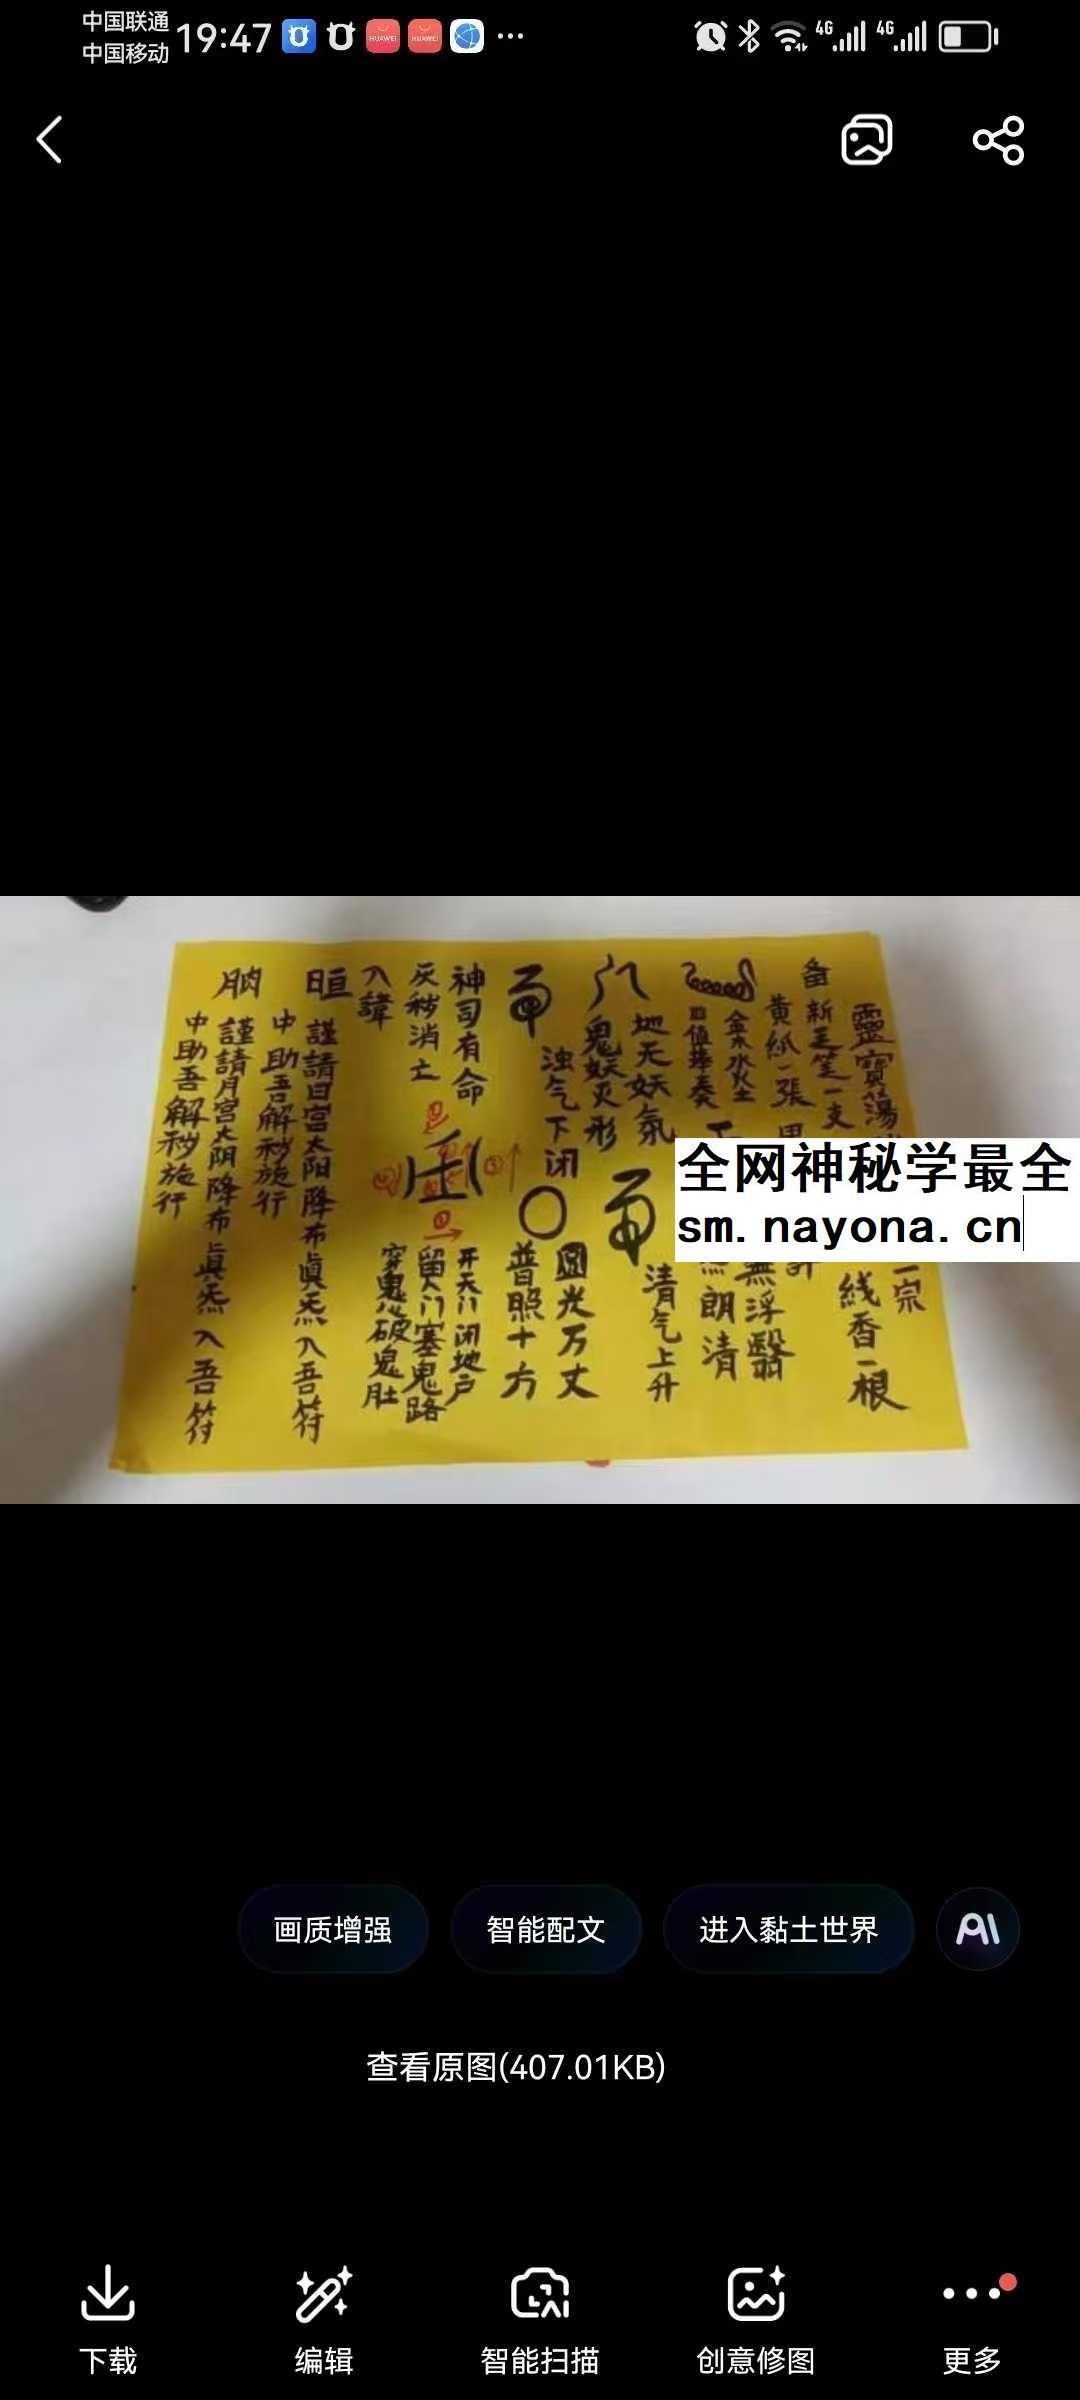 中国联通
中国移动
19:47
HUAWEI
HUAWEI
4G
4G
靈寶蕩
一宗
备新毛筆一支
线香一根
黄紙一張
金木水火土
值奉奏
無浮翳
朗清
地无妖氛
鬼妖灭形
清气上升
浊气下闭
圆光万丈
普照十方
神司有命
灰秽消亡
入諱
开天门闭地户
留人门塞鬼路
穿鬼心破鬼肚
謹請日宮太阳降布真炁入吾符
中助吾解秽施行
謹請月宮太阴降布真炁入吾符
中助吾解秽施行
全网神秘学最全
sm.nayona.cn
画质增强
智能配文
进入黏土世界
AI
查看原图(407.01KB)
下载
编辑
智能扫描
创意修图
更多